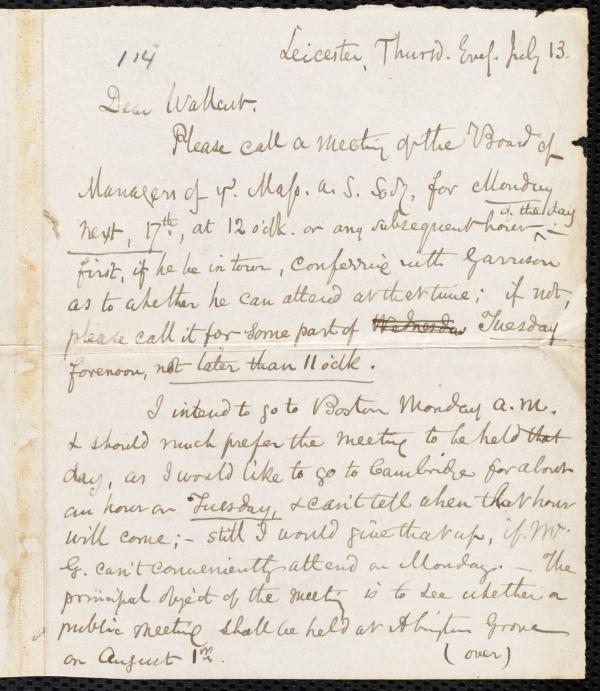 114
Leicester, Thursd. Eveg. July 13.
Dear Wallcut.
Please call a meeting of the Board of
Managers of ye. Mass. A. S. Socy, for Monday
next, 17th, at 12 o'clk. or any subsequent hour of that day
first, if he be in town, conferring with Garrison
as to whether he can attend at that time; if not,
please call it for some part of Wednesday Tuesday
forenoon, not later than 11 o'clk.
I intend to go to Boston Monday a.m.
& should much prefer the meeting to be held that
day, as I would like to go to Cambridge for about
an hour on Tuesday, & can't tell when that hour
will come; – still I would give that up, if Mr.
G. can't conveniently attend on Monday. – The
principal object of the meeting is to see whether a
public meeting shall be held at Abington Grove
on August 1st.
(over)